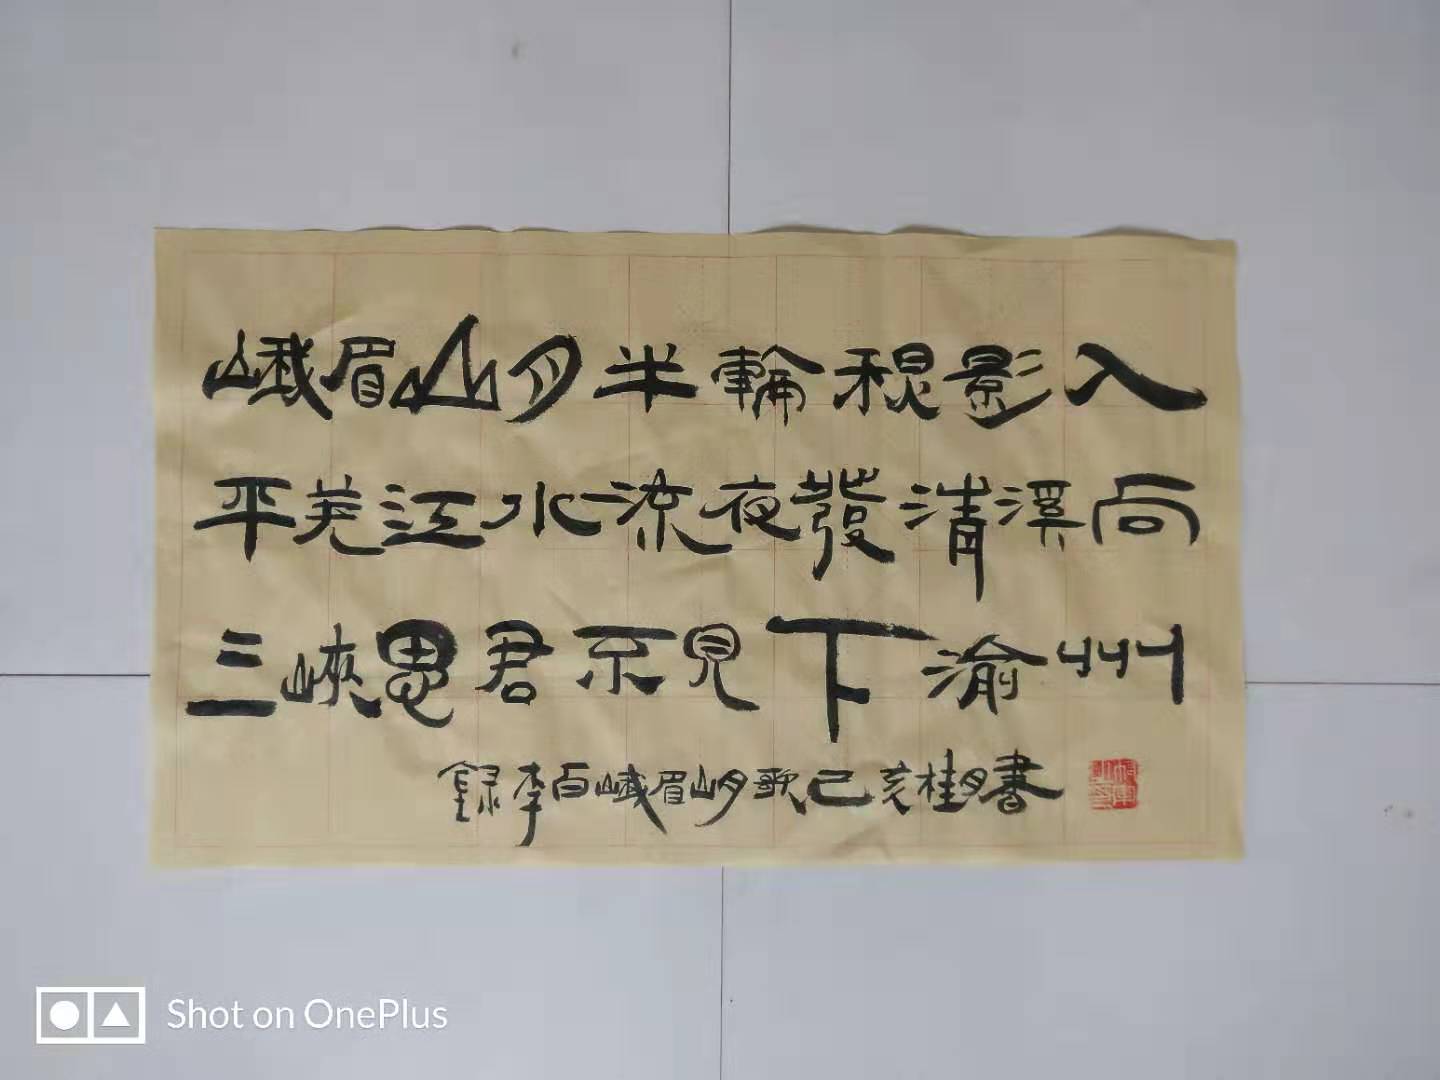 峨眉山月半輪秋影入
平羌江水流夜發清溪向
三峽思君不見下渝州
錄李白峨眉山月歌己亥桂月書
Shot on OnePlus